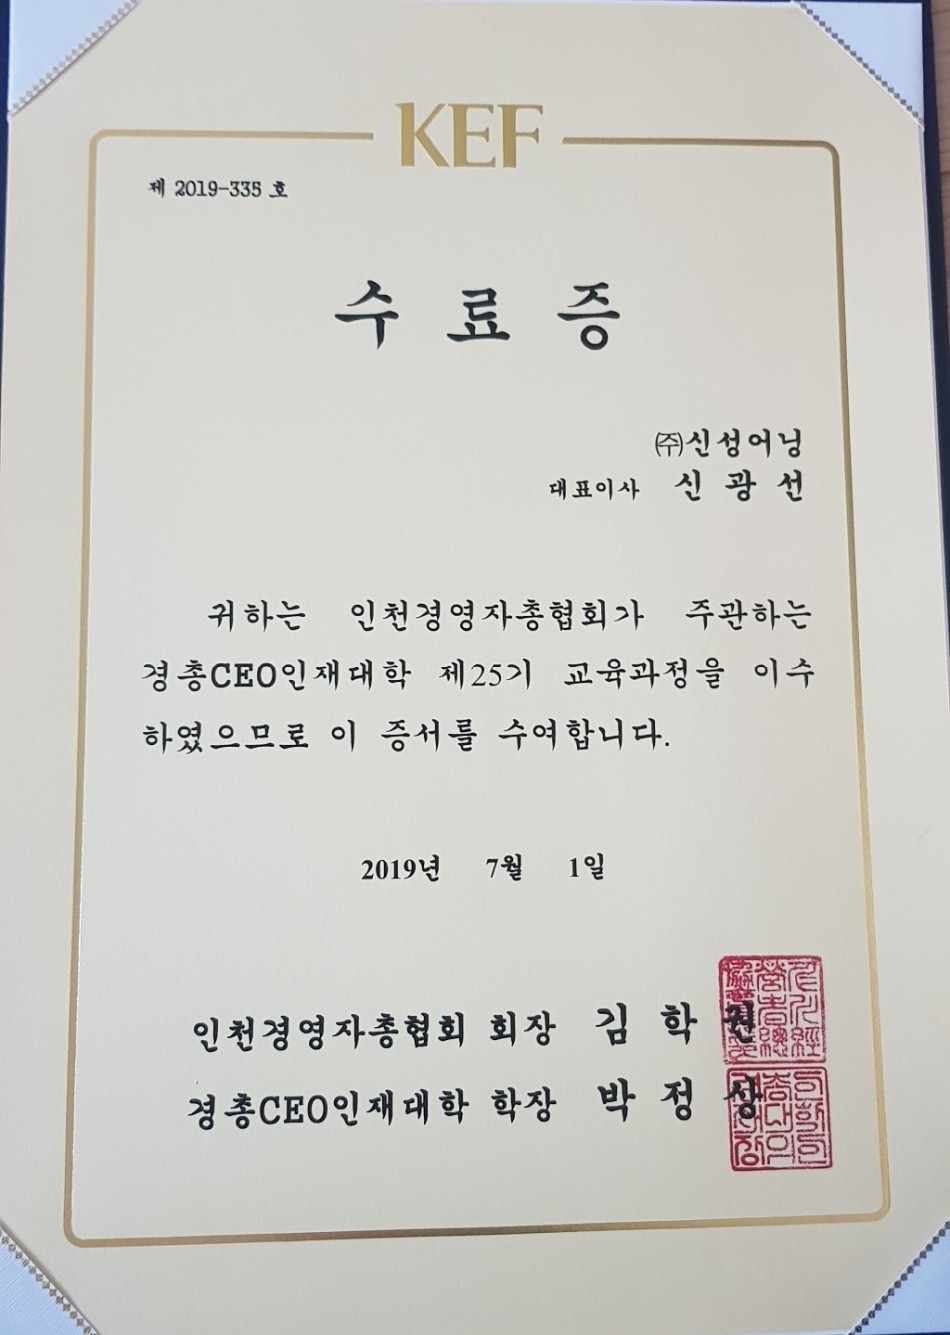 KEF
제 2019-335 호
수 료 증
㈜신성어닝
대표이사 신 광 선
귀하는 인천경영자총협회가 주관하는
경총CEO인재대학 제25기 교육과정을 이수
하였으므로 이 증서를 수여합니다.
2019년 7월 1일
인천경영자총협회 회장 김 학 권
경총CEO인재대학 학장 박 정 상